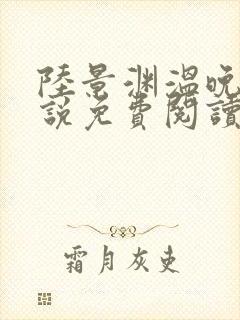 陸景渊溫晚
說免費閱讀
霜月灰吏